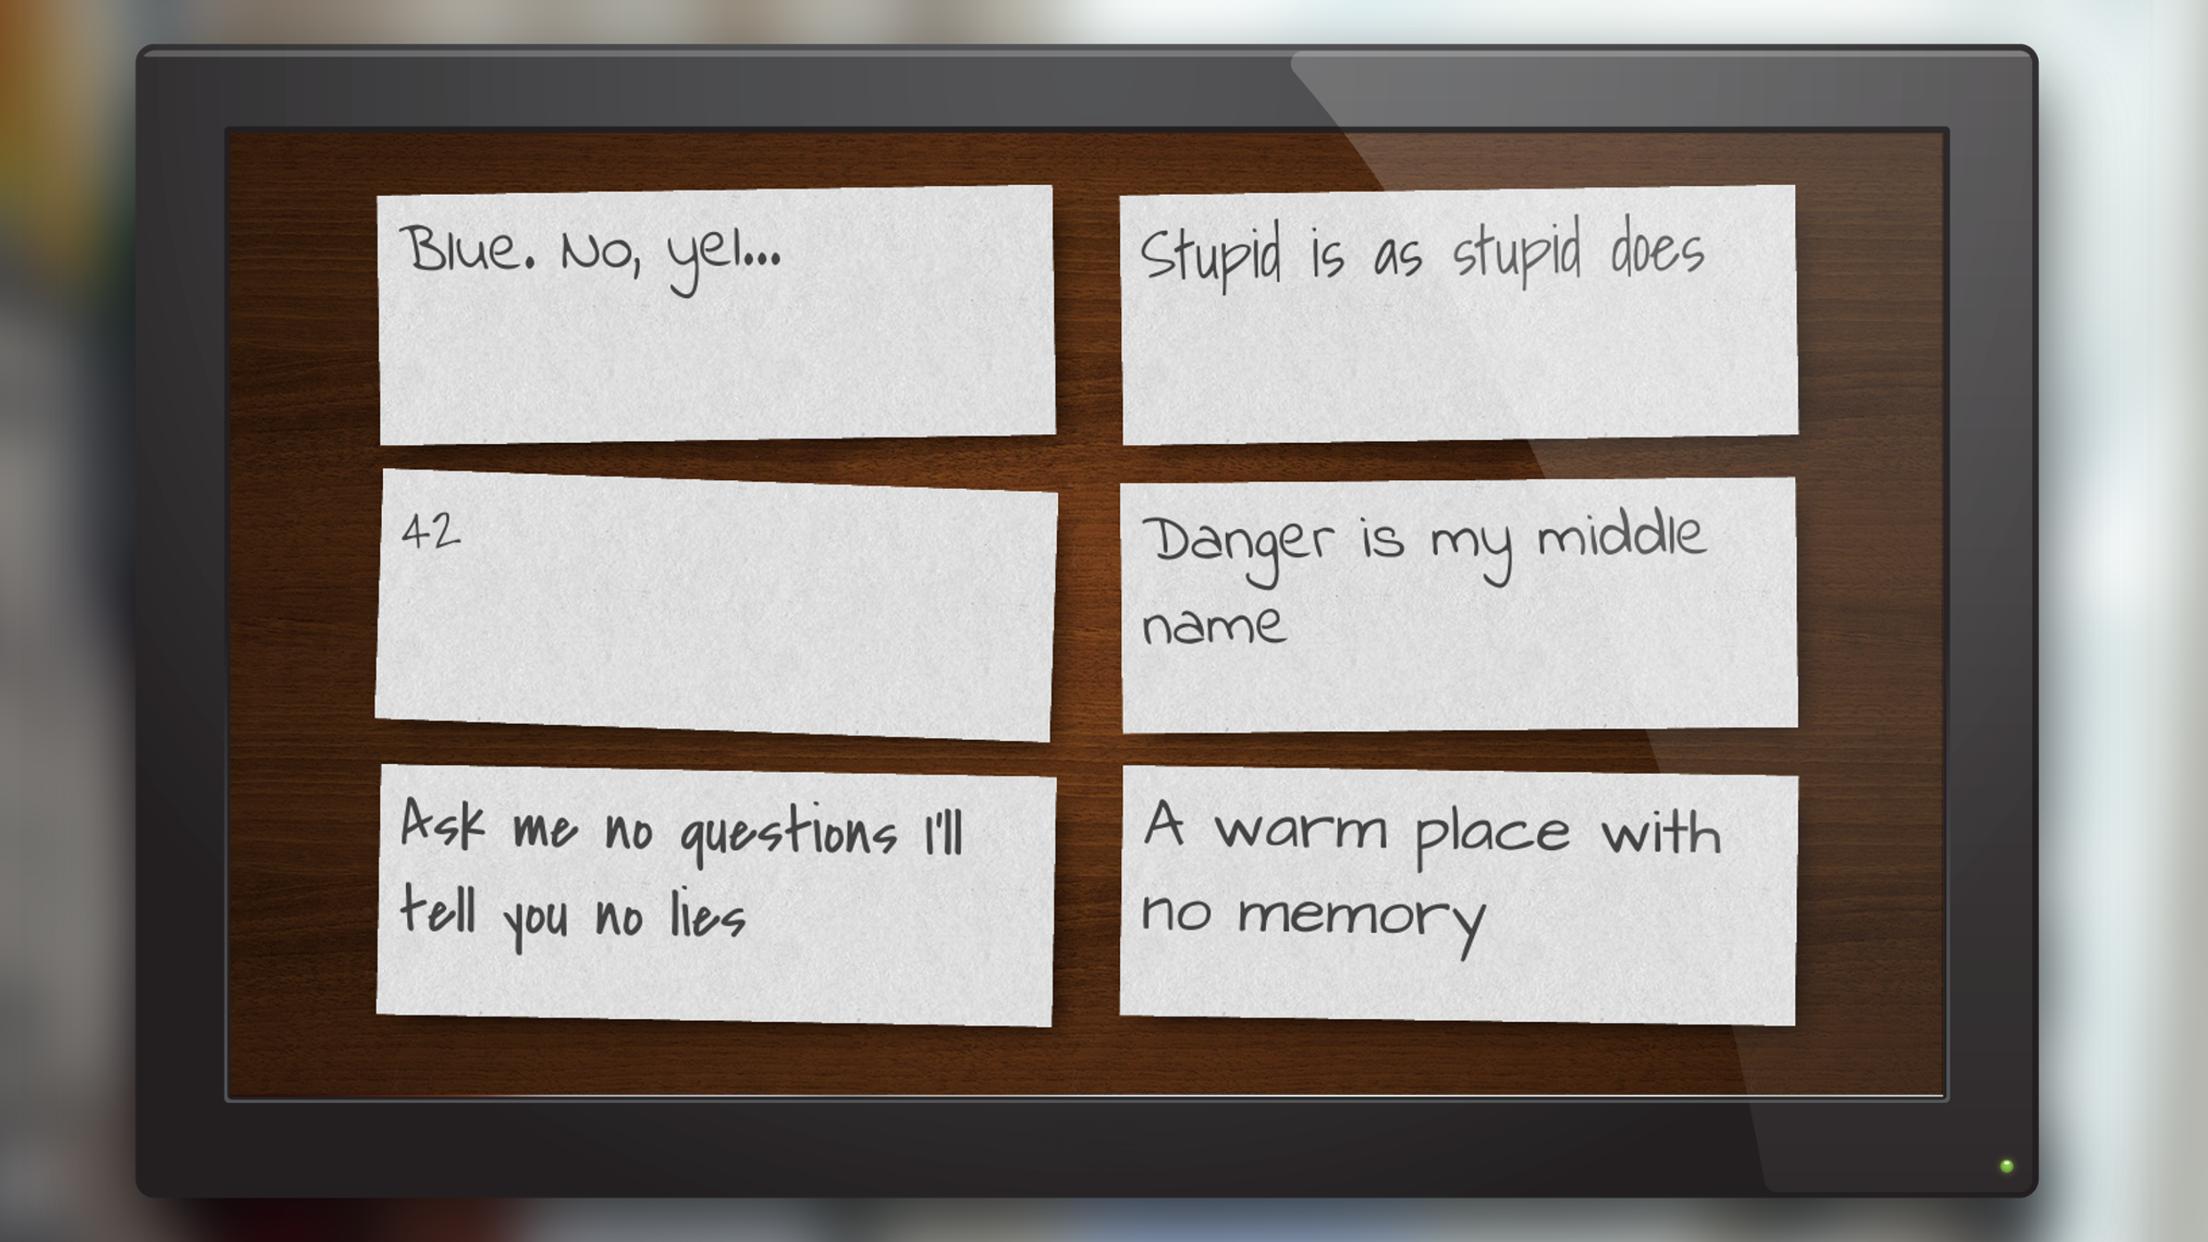 Blue. No, yel...
Stupid is as stupid does
42
Danger is my middle
name
Ask me no questions I'll
tell you no lies
A warm place with
no memory